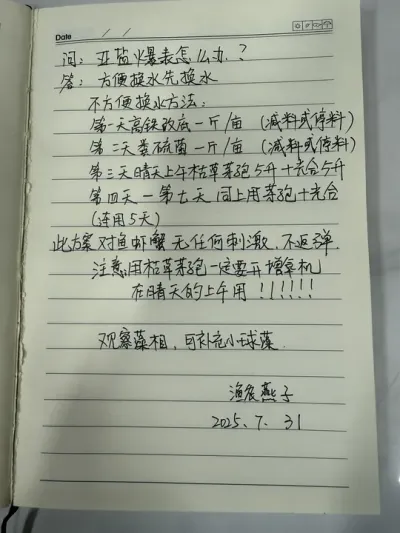 Date / /
问：亚盐爆表怎么办？
答：方便换水先换水
不方便换水方法：
第一天高铁改底一斤/亩（减料或停料）
第二天粪硫菌一斤/亩（减料或停料）
第三天晴天上午枯草芽孢5升+光合5升
第四天一第七天同上用芽孢+光合
（连用5天）
此方案对鱼虾蟹无任何刺激，不返弹.
注意用枯草芽孢一定要开增氧机
在晴天的上午用！！！！！！
观察藻相，可补充小球藻.
渔农燕子
2025、7. 31